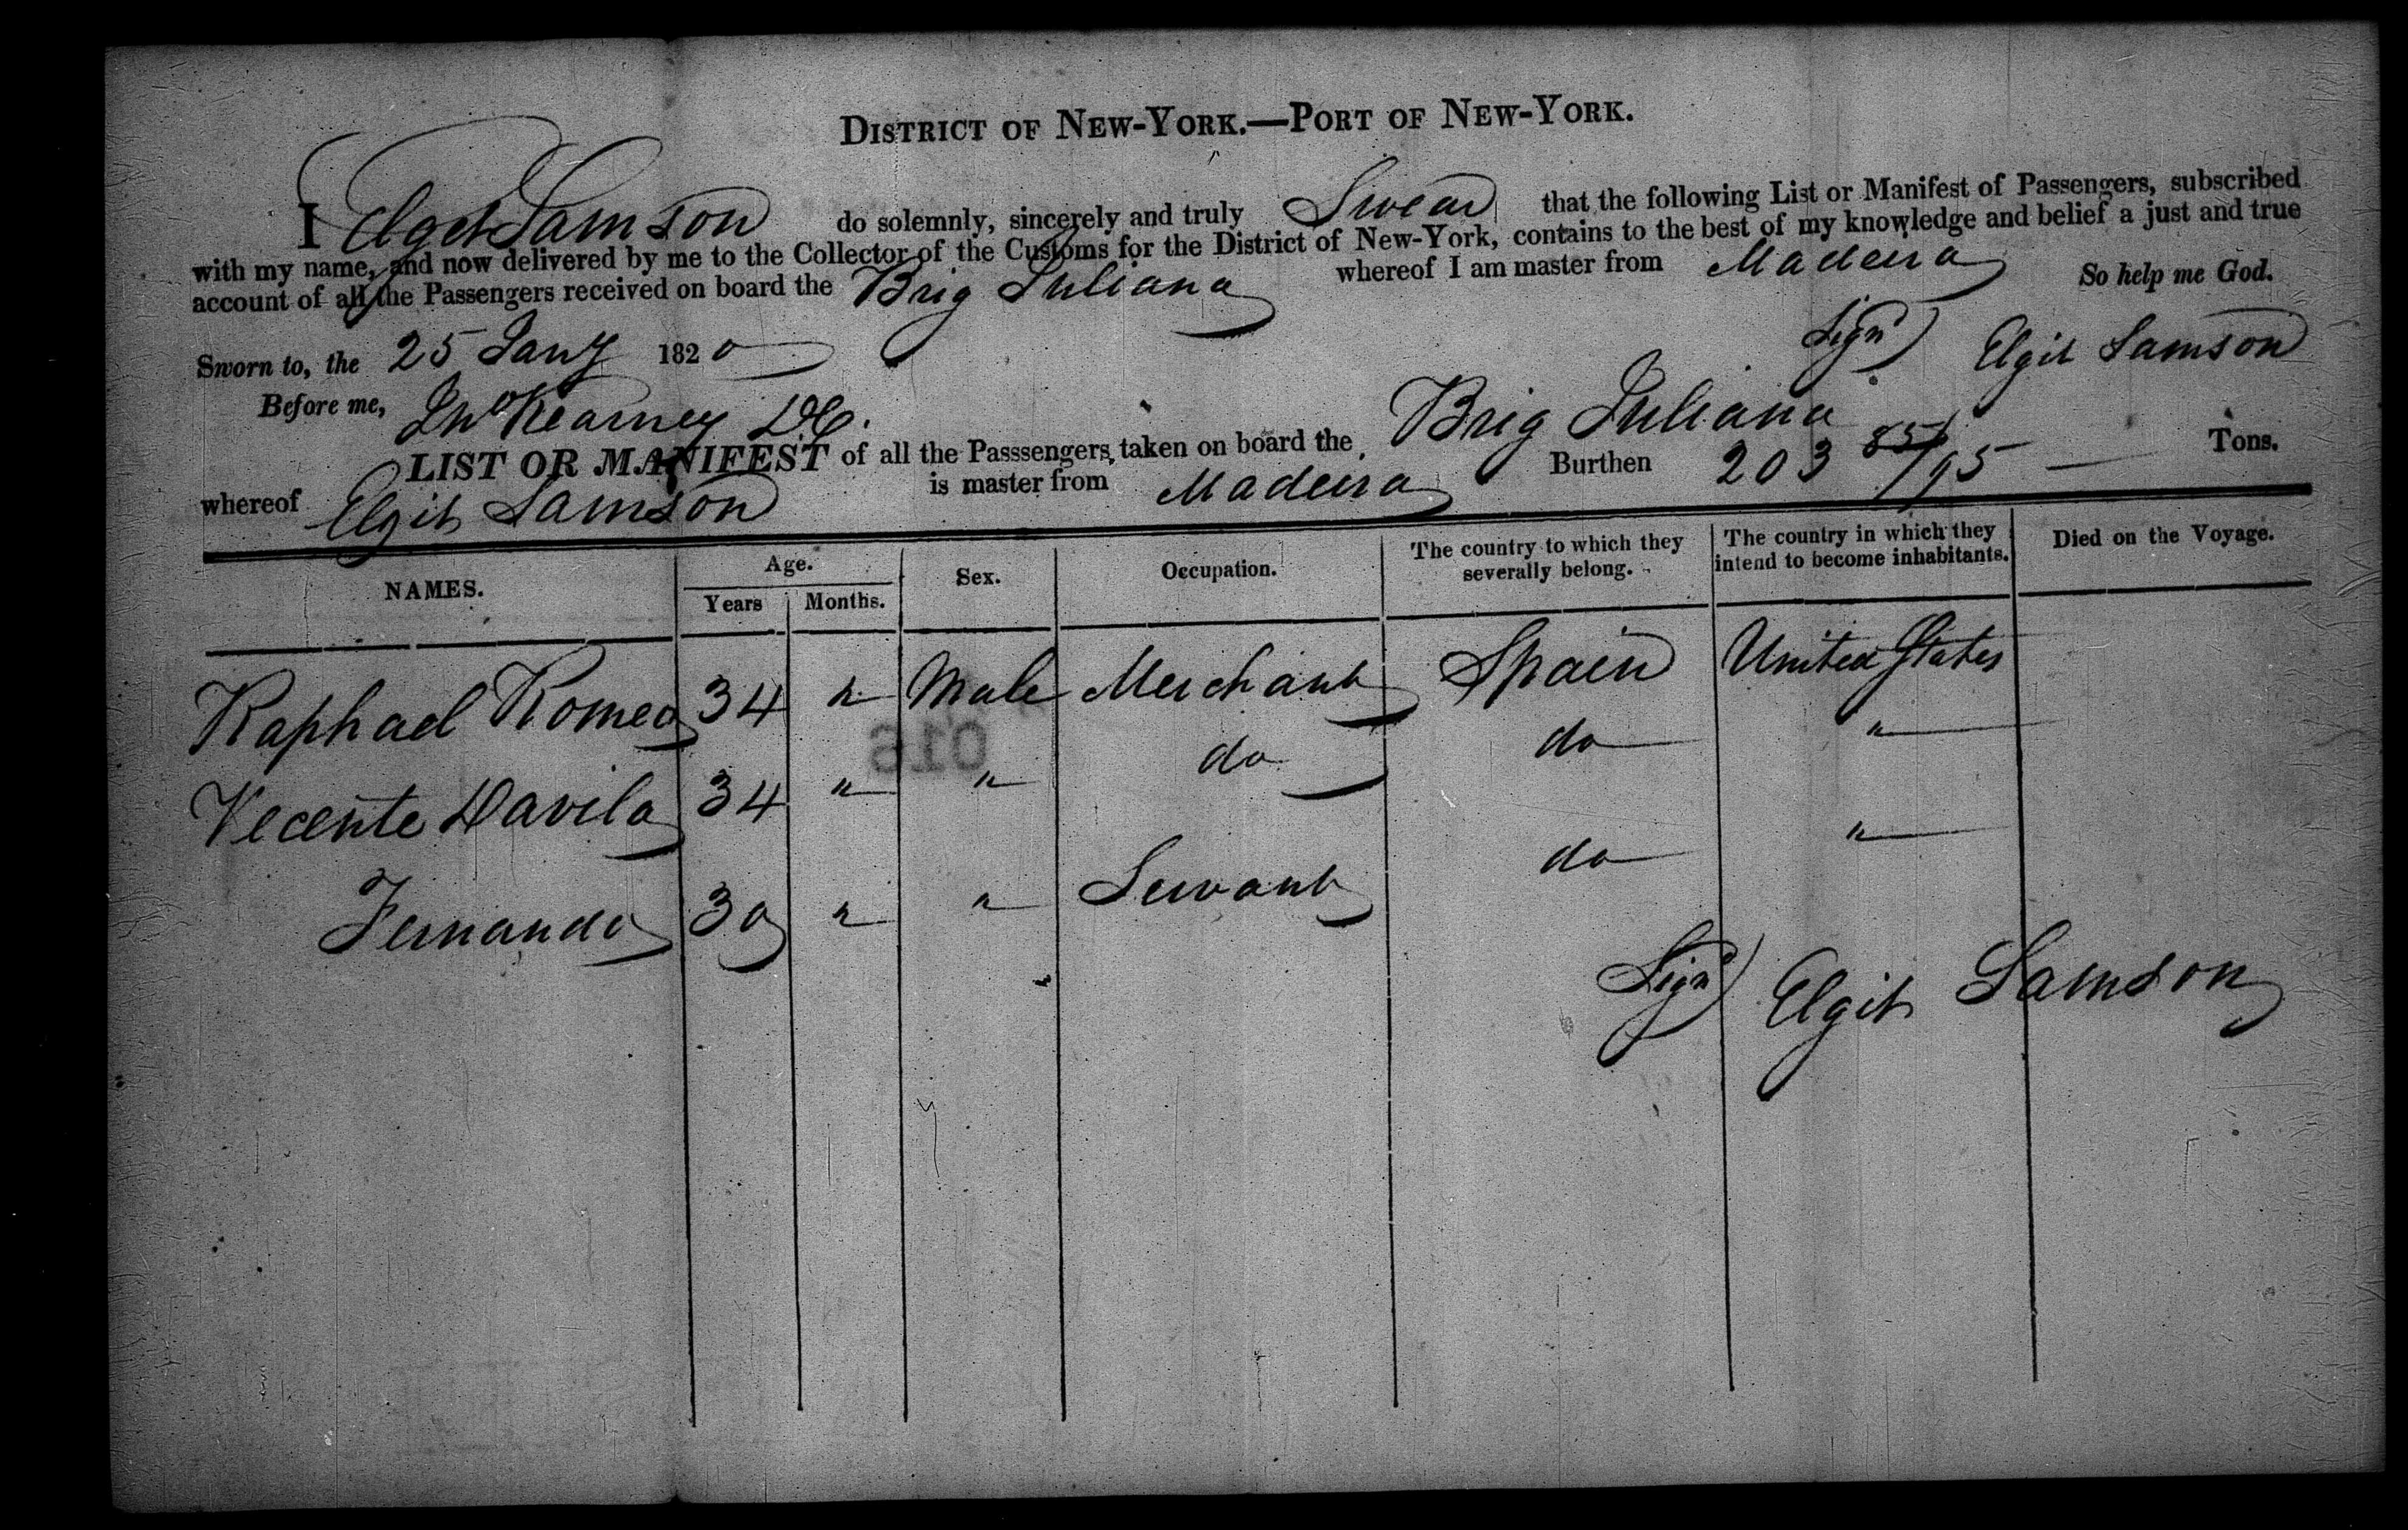 DISTRICT OF NEW-YORK.—PORT OF NEW-YORK.
I Elgit Samson do solemnly, sincerely and truly Swear that the following List or Manifest of Passengers, subscribed
with my name, and now delivered by me to the Collector of the Customs for the District of New-York, contains to the best of my knowledge and belief a just and true
account of all the Passengers received on board the Brig Juliana whereof I am master from Madeira So help me God.
Sworn to, the 25 Jany 1820 Signd) Elgit Samson
Before me, Jno Kearney DC.
LIST OR MANIFEST of all the Passsengers taken on board the Brig Juliana
whereof Elgit Samson is master from Madeira Burthen 203 85/95 Tons.
NAMES. Age. Years Months. Sex. Occupation. The country to which they severally belong. The country in which they intend to become inhabitants. Died on the Voyage.
Raphael Romeo 34 " Male Merchant Spain United States
Vecente Davila 34 " " do do "
Fernando 30 " " Servant do "
Signd) Elgit Samson
016